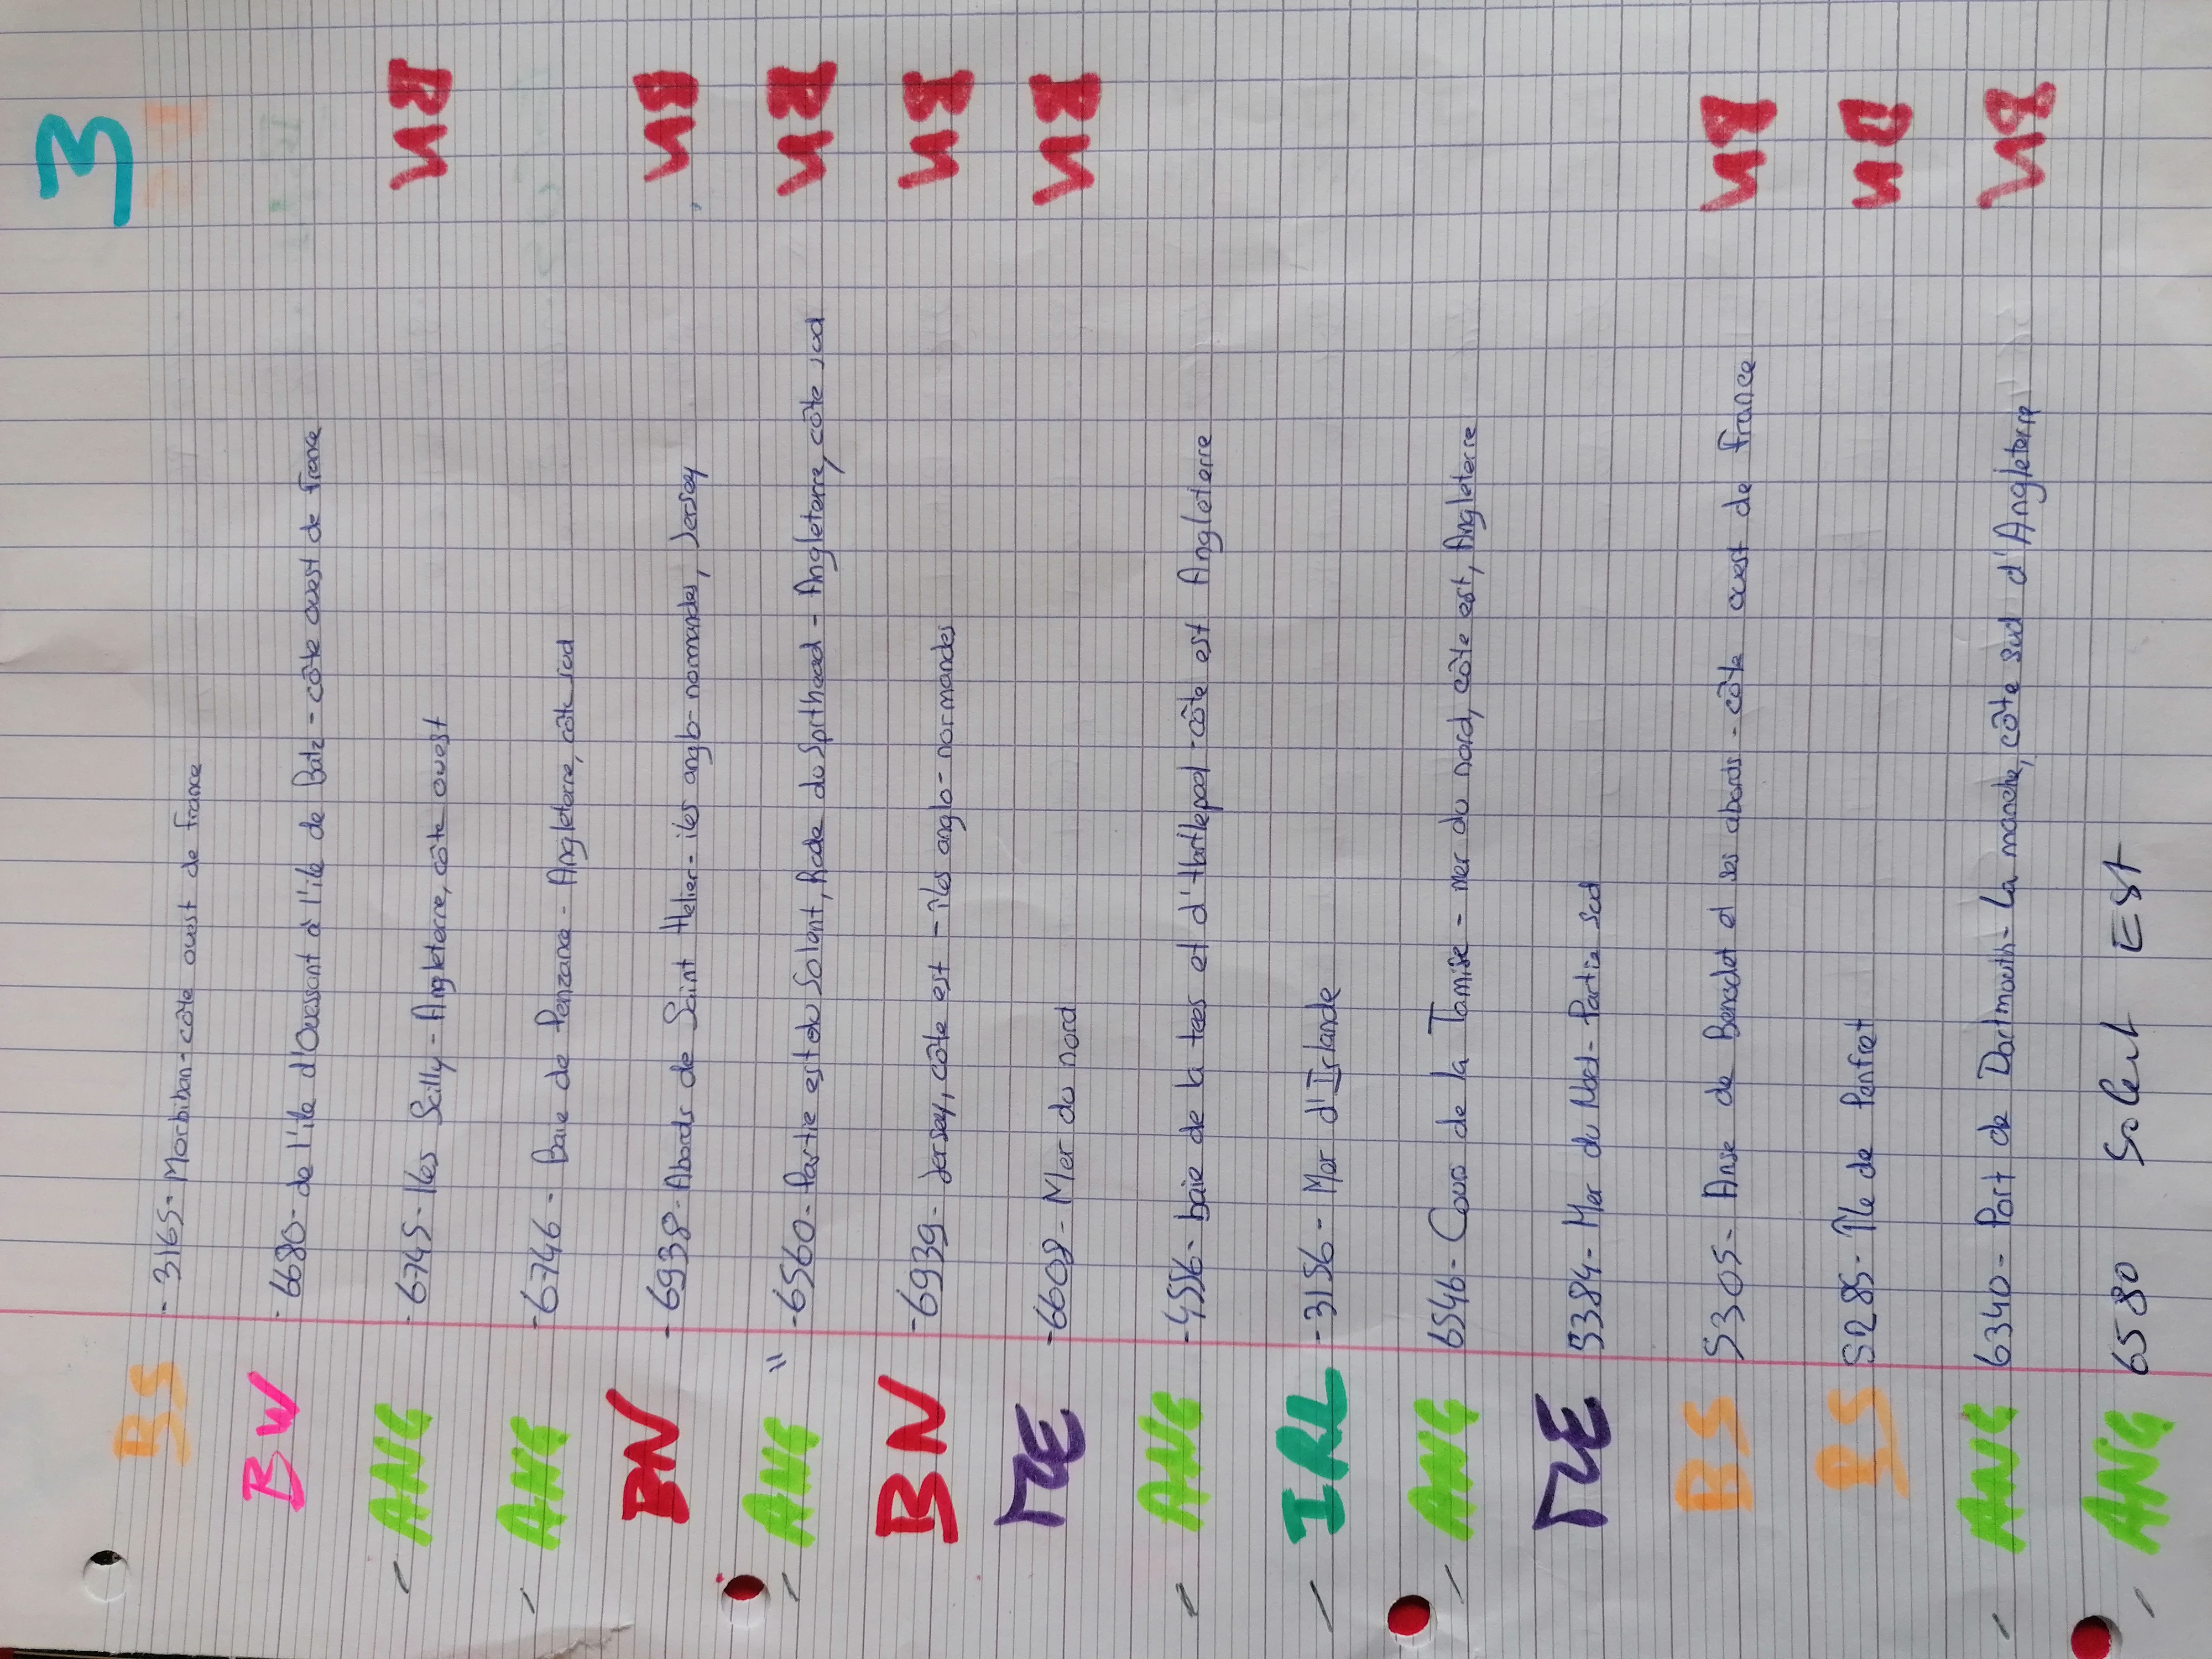 3
BS - 3165 - Morbihan - côte ouest de France
BW - 6680 - de l'île d'Ouessant à l'île de Batz - côte ouest de France
ANG - 6745 - Iles Scilly - Angleterre, côte ouest
ANG - 6746 - Baie de Penzance - Angleterre, côte sud
BN - 6938 - Abords de Saint Helier - iles anglo-normandes, Jersey
ANG " - 6560 - Partie est du Solant, Rade du Spithead - Angleterre, côte sud
BN - 6939 - Jersey, côte est - îles anglo-normandes
- 6608 - Mer du nord
ANG - 4556 - baie de la tees et d'Hartlepool - côte est Angleterre
IRL - 3156 - Mer d'Irlande
ANG 6546 - Cours de la Tamise - mer du nord, côte est, Angleterre
5384 - Mer du Nord - Partie sud
BS 5305 - Anse de Benodet et ses abords - côte ouest de France
BS 5285 - Île de Penfret
ANG 6340 - Port de Dartmouth - La manche, côte sud d'Angleterre
ANG 6580 Solent EST